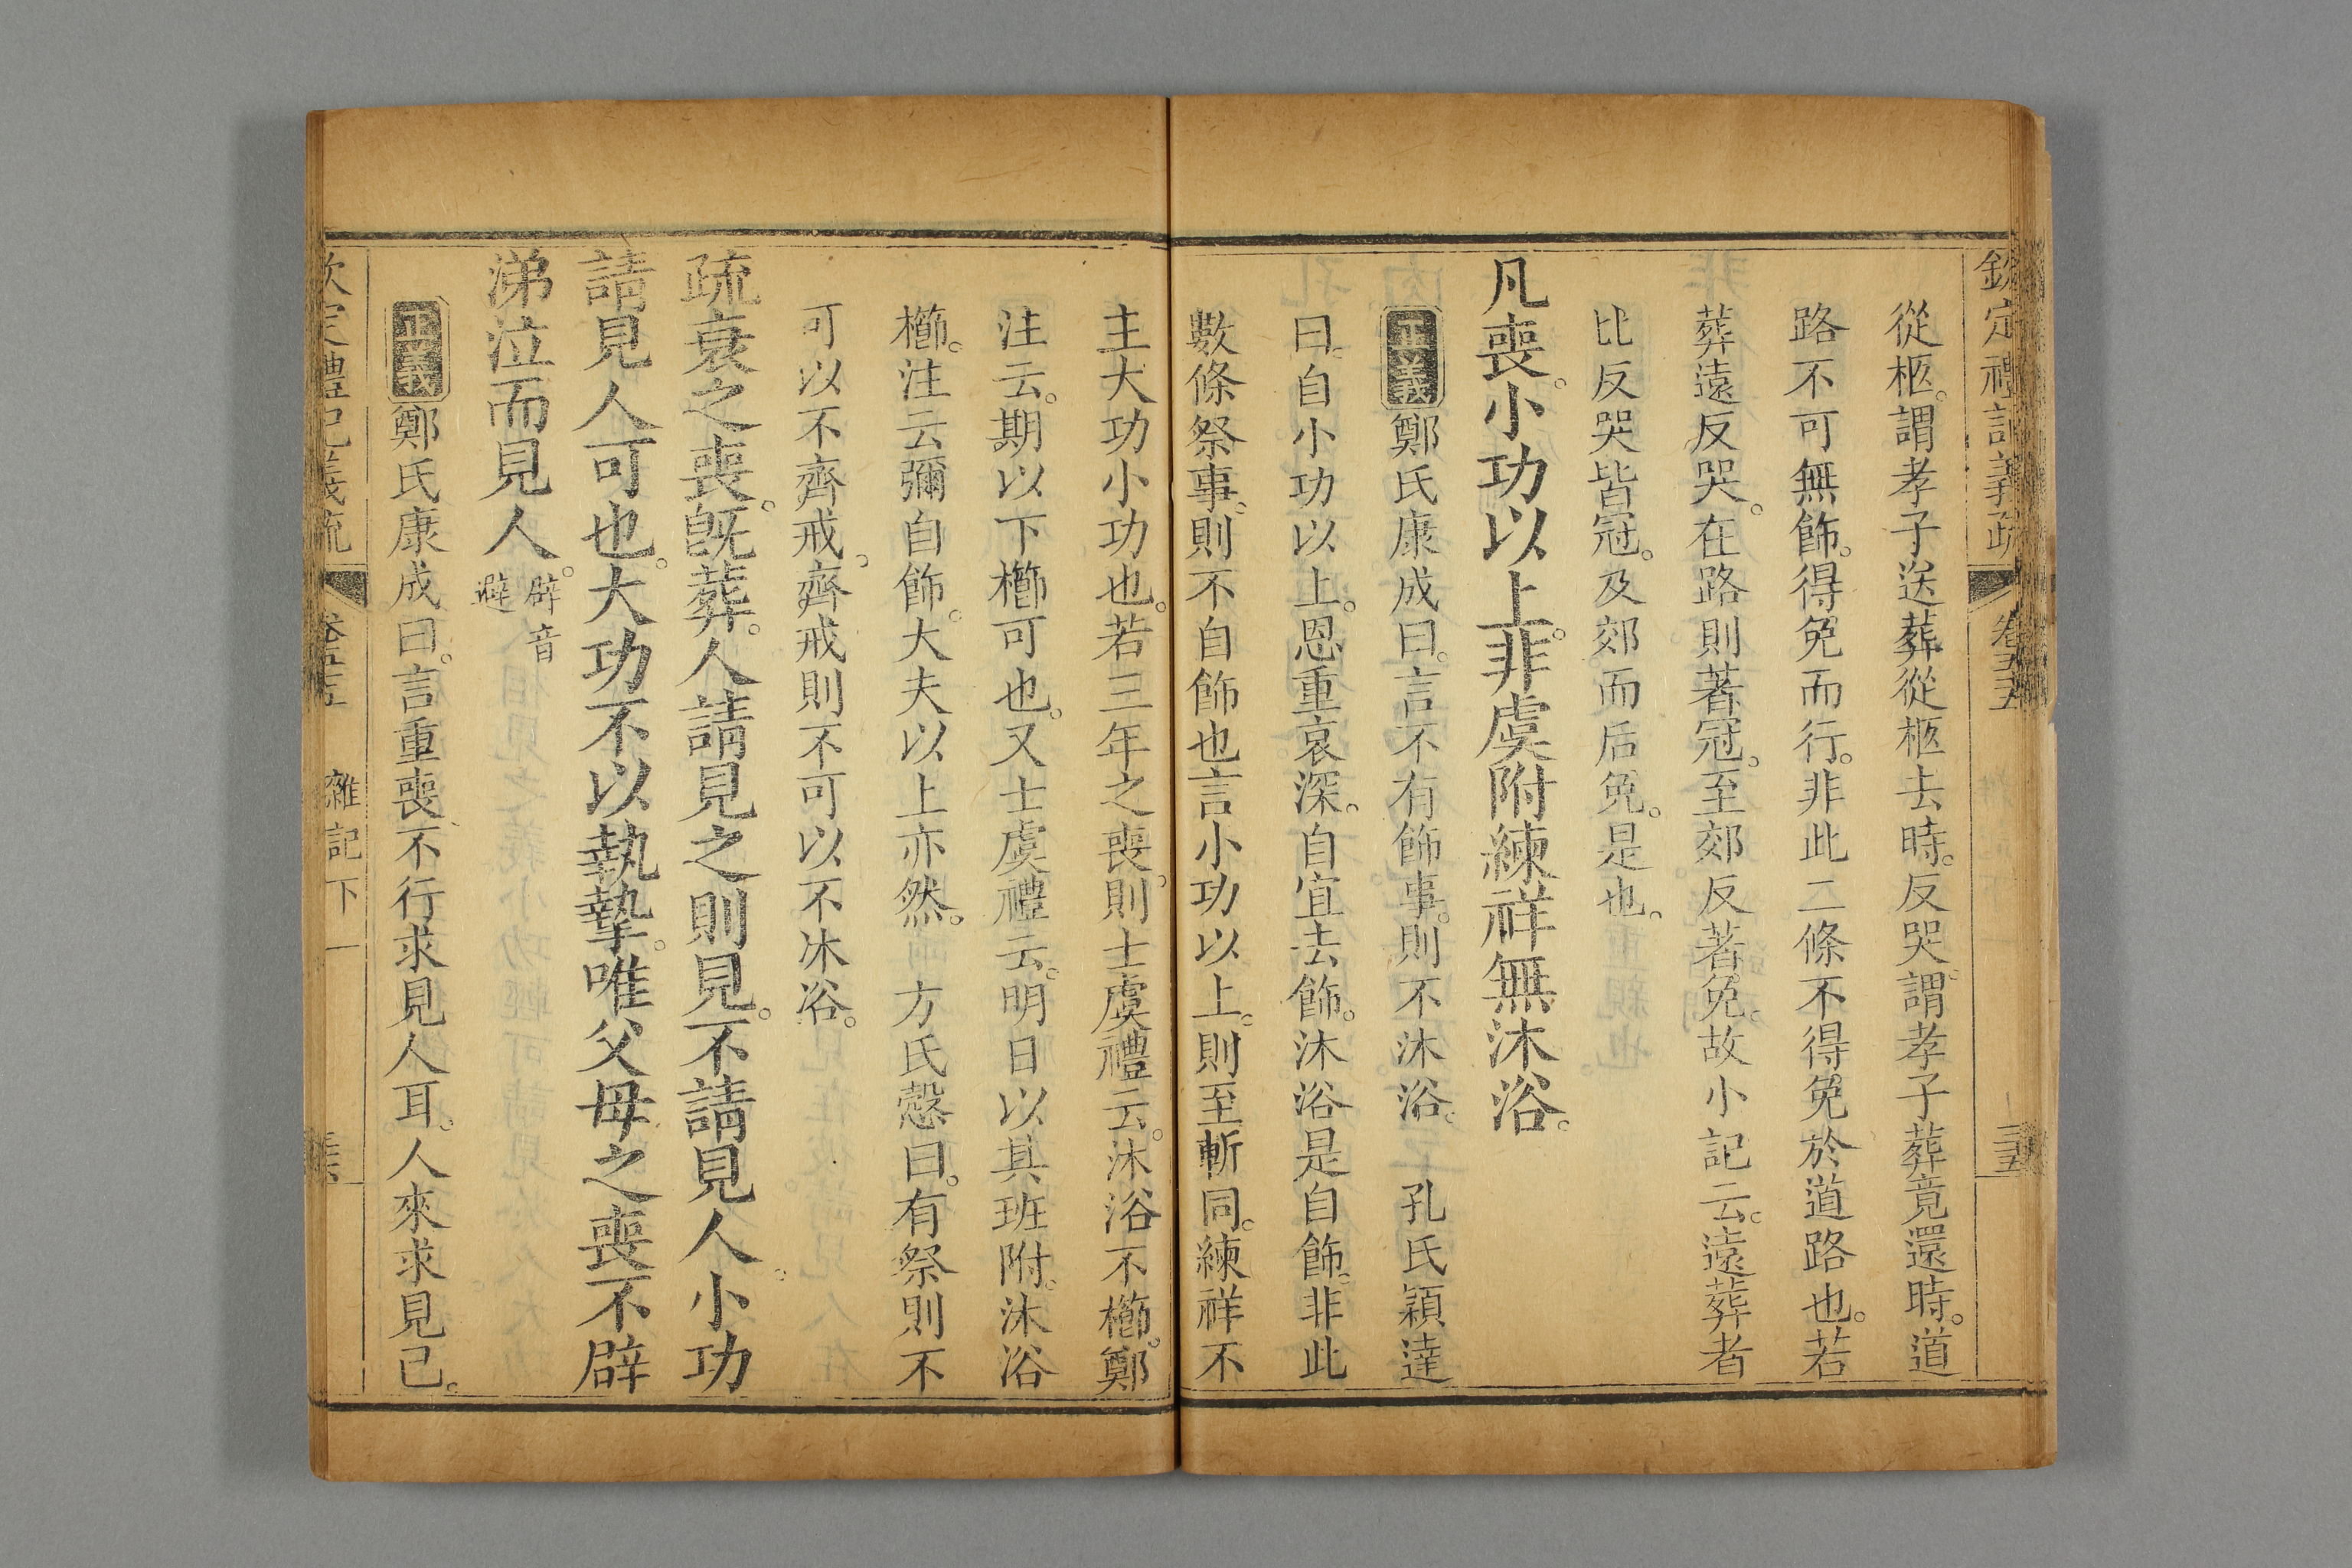 欽定禮記義疏 卷五十五 三五
從柩。謂孝子送葬從柩去時。反哭。謂孝子葬竟還時。道
路不可無飾。得免而行。非此二條不得免於道路也。若
葬遠反哭。在路則著冠。至郊反著免。故小記云。遠葬者
比反哭皆冠。及郊而后免。是也。
凡喪。小功以上。非虞附練祥無沐浴。
正義鄭氏康成曰。言不有飾事。則不沐浴。 孔氏穎達
曰。自小功以上。恩重哀深。自宜去飾。沐浴是自飾。非此
數條祭事。則不自飾也言小功以上。則至斬同。練祥不
主大功小功也。若三年之喪。則士虞禮云。沐浴不櫛。鄭
注云。期以下櫛可也。又士虞禮云。明日以其班附。沐浴
櫛。注云彌自飾。大夫以上亦然。 方氏慤曰。有祭則不
可以不齊戒。齊戒則不可以不沐浴。
疏衰之喪。旣葬。人請見之則見。不請見人。小功
請見人可也。大功不以執摯。唯父母之喪不辟
涕泣而見人。辟音避
正義鄭氏康成曰。言重喪不行求見人耳。人來求見已。
欽定禮記義疏 卷五十五 雜記下一